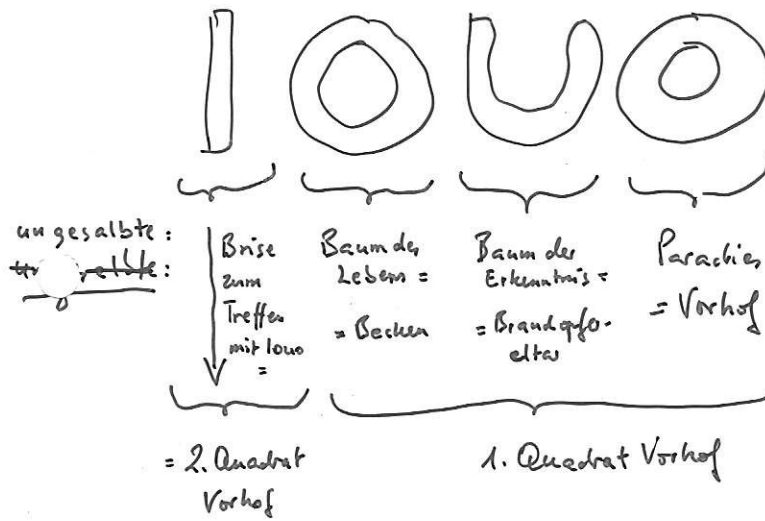 I O U O
ungesalbte:
Brise
zum
Treffen
mit Iouo
=
Baum des
Lebens =
= Becken
Baum der
Erkenntnis =
= Brandopfer-
altar
Paradies
= Vorhof
= 2. Quadrat
Vorhof
1. Quadrat Vorhof